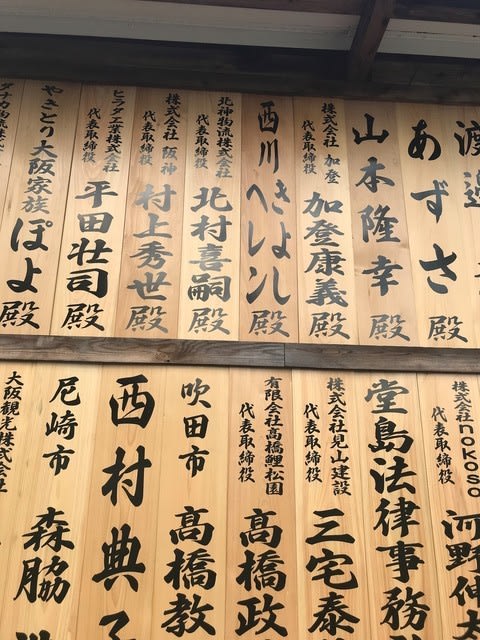 渡
あずさ殿
山本隆幸殿
株式会社 加登
代表取締役
加登康義殿
西川
きよし
ヘレン
殿
北神物流株式会社
代表取締役
北村喜嗣殿
株式会社 阪神
代表取締役
村上秀世殿
ヒラタ工業株式会社
代表取締役
平田壮司殿
やきとり大阪家族ぽよ殿
株式会社nokoso
代表取締役
河野伸
堂島法律事務
株式会社見山建設
代表取締役
三宅泰
有限会社髙橋鯉松園
代表取締役
髙橋政
吹田市
髙橋教
西村典
尼崎市
森脇
大阪観光株式会